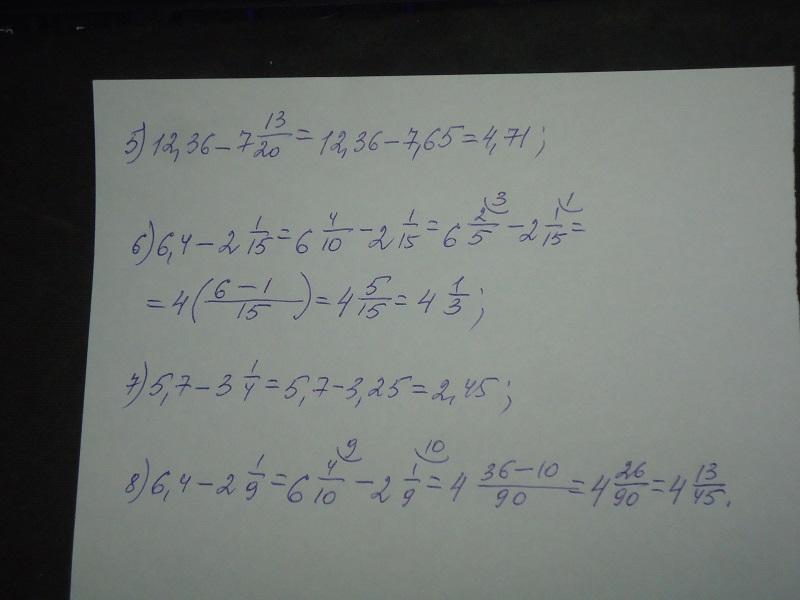 5) 12,36 - 7 13/20 = 12,36 - 7,65 = 4,71;
6) 6,4 - 2 1/15 = 6 4/10 - 2 1/15 = 6 2/5 ³ - 2 1/15 ¹ =
= 4 ( (6 - 1)/15 ) = 4 5/15 = 4 1/3;
7) 5,7 - 3 1/4 = 5,7 - 3,25 = 2,45;
8) 6,4 - 2 1/9 = 6 4/10 ⁹ - 2 1/9 ¹⁰ = 4 (36 - 10)/90 = 4 26/90 = 4 13/45.